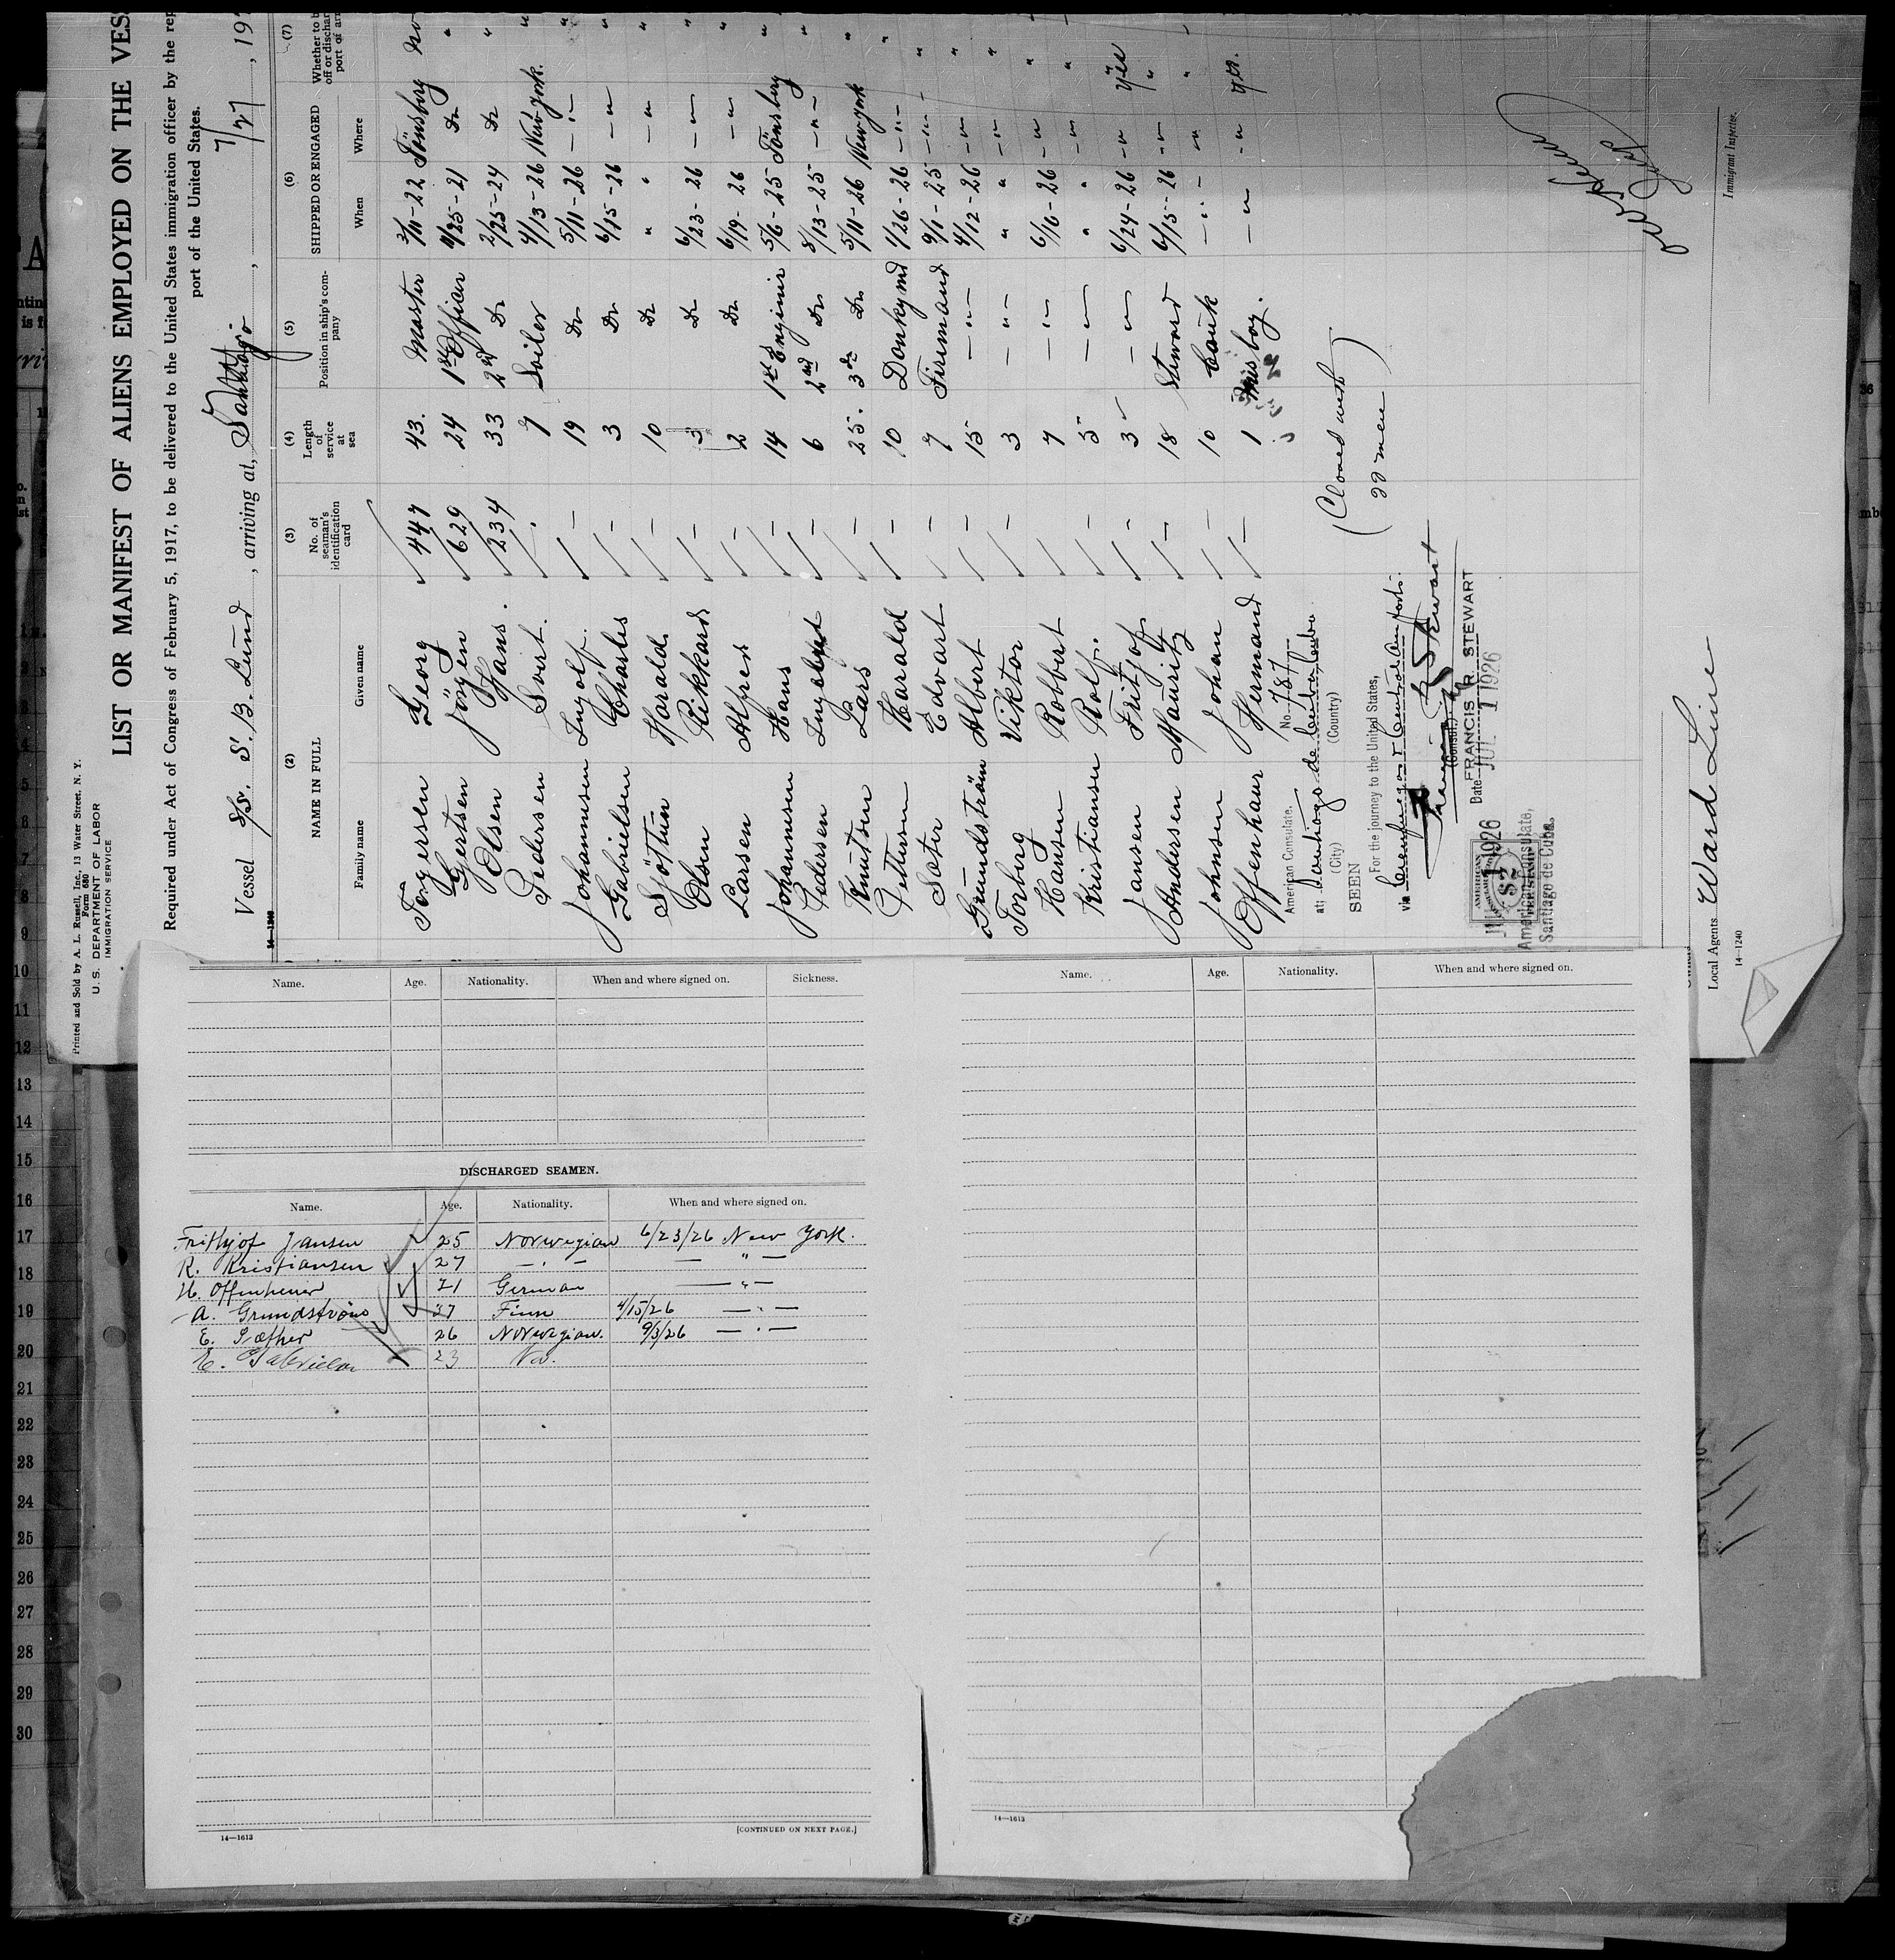 Printed and Sold by A. L. Russell, Inc., 13 Water Street, N. Y.
Form 680
U. S. DEPARTMENT OF LABOR
IMMIGRATION SERVICE
LIST OR MANIFEST OF ALIENS EMPLOYED ON THE VES
Required under Act of Congress of February 5, 1917, to be delivered to the United States immigration officer by the rep
port of the United States.
Vessel S/S. S. B. Lund, arriving at, Santiago, 7/27, 19
14—1240
(2) (3) (4) (5) (6) (7)
NAME IN FULL No. of seaman's identification card Length of service at sea Position in ship's company SHIPPED OR ENGAGED Whether to b
off or dischar
port of arr
Family name Given name When Where
Torgersen Georg 447 43. Master 3/11-22 Tönsberg no
Gertsen Jörgen 629 24 1st Officer 9/25-21 Do "
Olsen Hans. 234 33 2nd Do 2/25-24 Do "
Pedersen Svert. 7 Sailer 4/13-26 New York. "
Johannsen Ingolf. — 19 Do 5/11-26 — " — "
Gabrielsen Charles — 3 Do 6/15-26 — " "
Sjöttun Harald. — 10 Do " — " "
Olsen Rikkard — 3 Do 6/23-26 — " "
Larsen Alfred — 2 Do 6/19-26 — " "
Johannesen Hans — 14 1st Enginir 5/6-25 Tönsberg "
Pedersen — 6 2nd Do 8/13-25 — " — "
Knutsen Lars — 25. 3de Do 5/11-26 New York "
Petterson Harald — 10 Donkymd 1/26-26 — " — "
Sæter Edvart — 7 Firemand 9/1-25 — " — "
Grundström Albert — 15 — " — 4/12-26 — " "
Torberg Viktor — 3 — " — " — " "
Hansen Robbert 7 — " — 6/16-26 — " "
Kristiansen Rolf. — 5 — " — " — " "
Jansen Fritjof — 3 — " — 6/24-26 — " yes
Andersen Mauritz — 18 Steward 6/15-26 — " "
Johnsen Johan — 10 Couk — " — — " "
Offenhaur Hermand — 1 Misboy. — " — — " yes.
(Closed with
22 men)
American Consulate, No. 787
at, Santiago de Cuba, Cuba
(City) (Country)
SEEN
For the journey to the United States,
via Cienfuegos & Cuban outports.
Francis R Stewart
(Consul)
FRANCIS R. STEWART
Date JUL 1 1926
JUL 1 1926
AMERICAN
$2
American Consulate,
Santiago de Cuba.
Immigrant Inspector.
Local Agents Ward Line
14—1240
Name. Age. Nationality. When and where signed on. Sickness.
DISCHARGED SEAMEN.
Name. Age. Nationality. When and where signed on.
Frithjof Jansen 25 Norwegian 6/23/26 New York.
R. Kristiansen 27 — " — — " —
H. Offenheuer 21 German — " —
A. Grundström 37 Finn 4/15/26 — " —
E. Sæther 26 Norwegian. 9/3/26 — " —
E. Gabrielsen 23 No.
14—1613 [CONTINUED ON NEXT PAGE.]
Name. Age. Nationality. When and where signed on.
14—1613
9
10
11
12
13
14
15
16
17
18
19
20
21
22
23
24
25
26
27
28
29
30